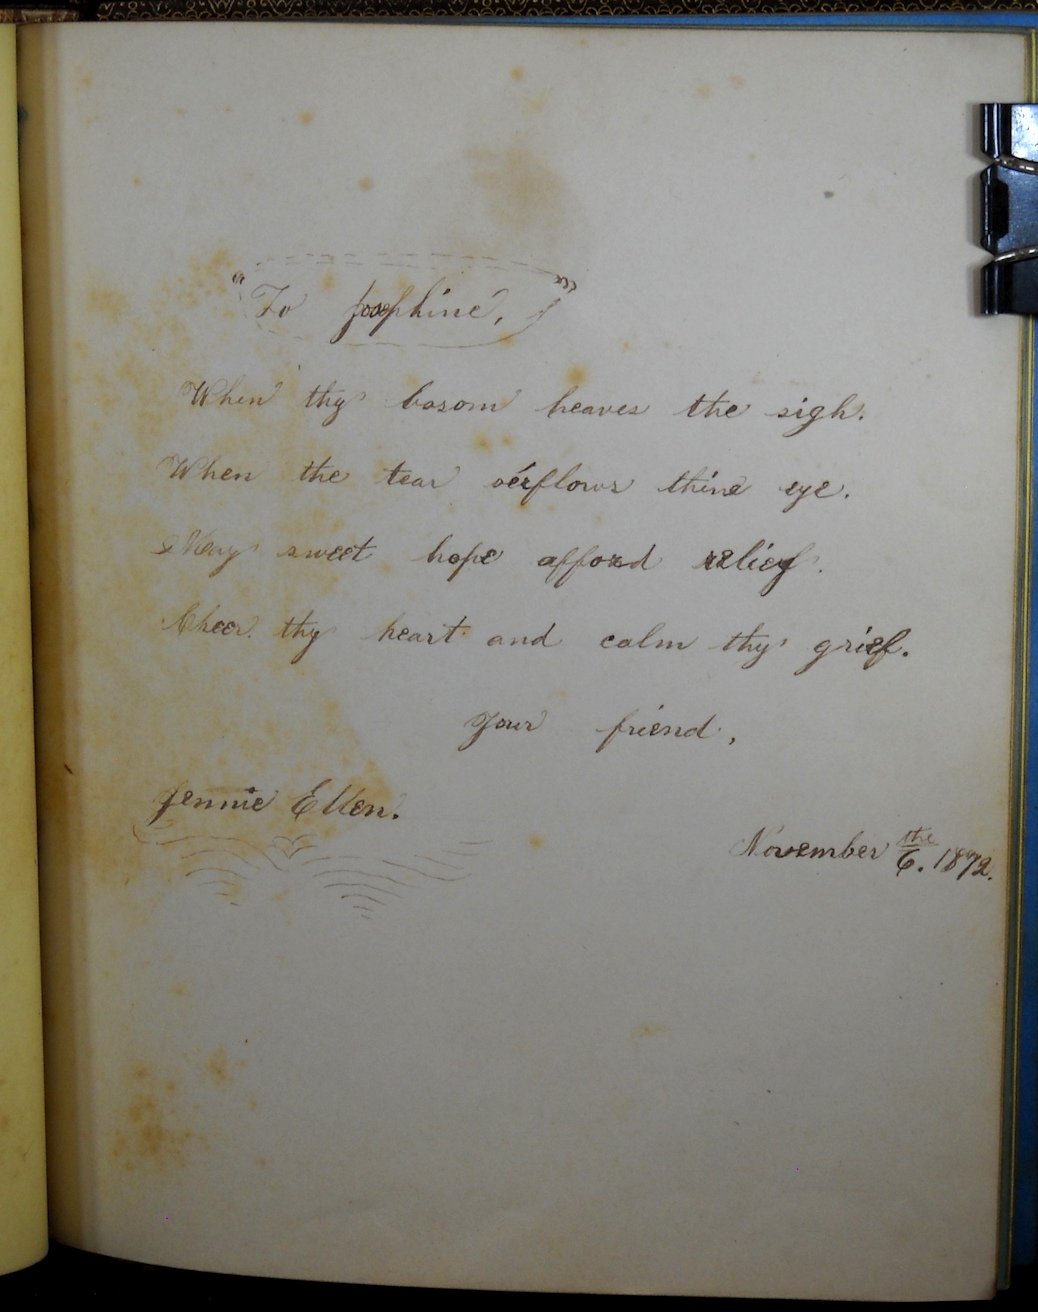 "To Josephine,"
When thy bosom heaves the sigh.
When the tear o'erflows thine eye.
May sweet hope afford relief.
Cheer thy heart and calm thy grief.
Your friend,
Jennie Ellen.
November the 6. 1872.